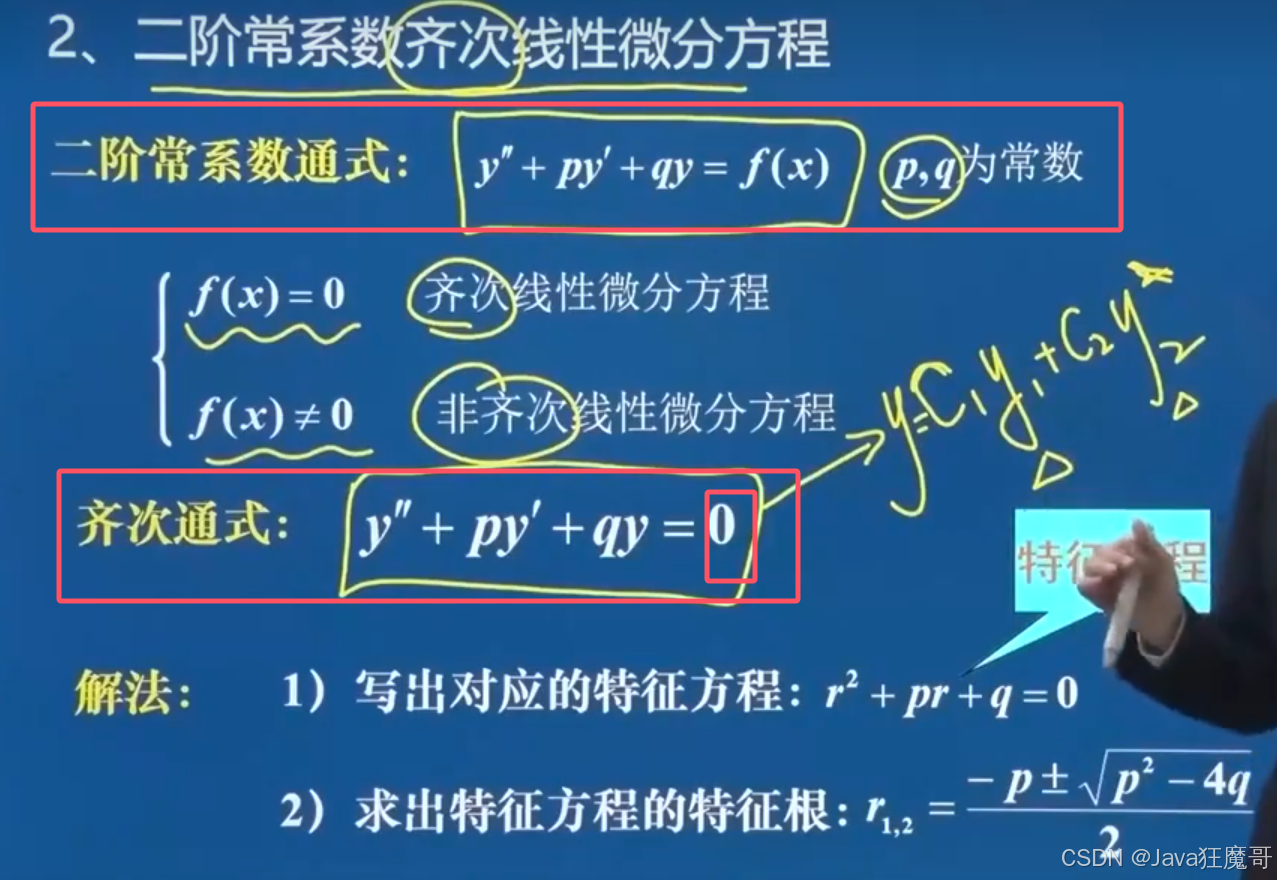 2、二阶常系数齐次线性微分方程
二阶常系数通式: y″ + py′ + qy = f(x) p,q为常数
f(x) = 0 齐次线性微分方程
f(x) ≠ 0 非齐次线性微分方程
y=C₁y₁+C₂y₂*
齐次通式: y″ + py′ + qy = 0
特 程
解法: 1) 写出对应的特征方程: r² + pr + q = 0
2) 求出特征方程的特征根: r₁,₂ = (−p ± √(p² − 4q)) / 2
CSDN @Java狂魔哥